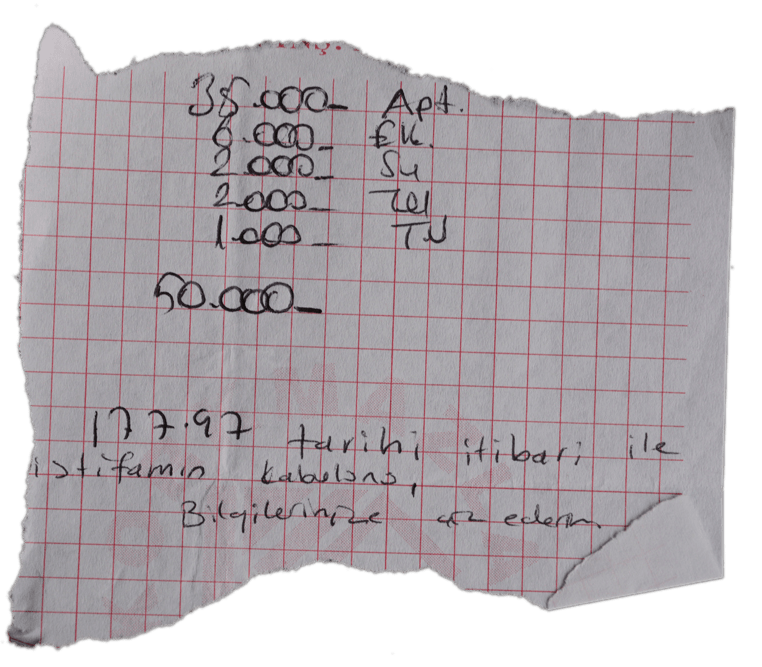 38.000- Apt.
6.000- EK.
2.000- Su
2.000- Tel
1.000- TV
50.000-
177.97 tarihi itibari ile
istifamin kabulunu,
Bilgilerinize arz ederim.